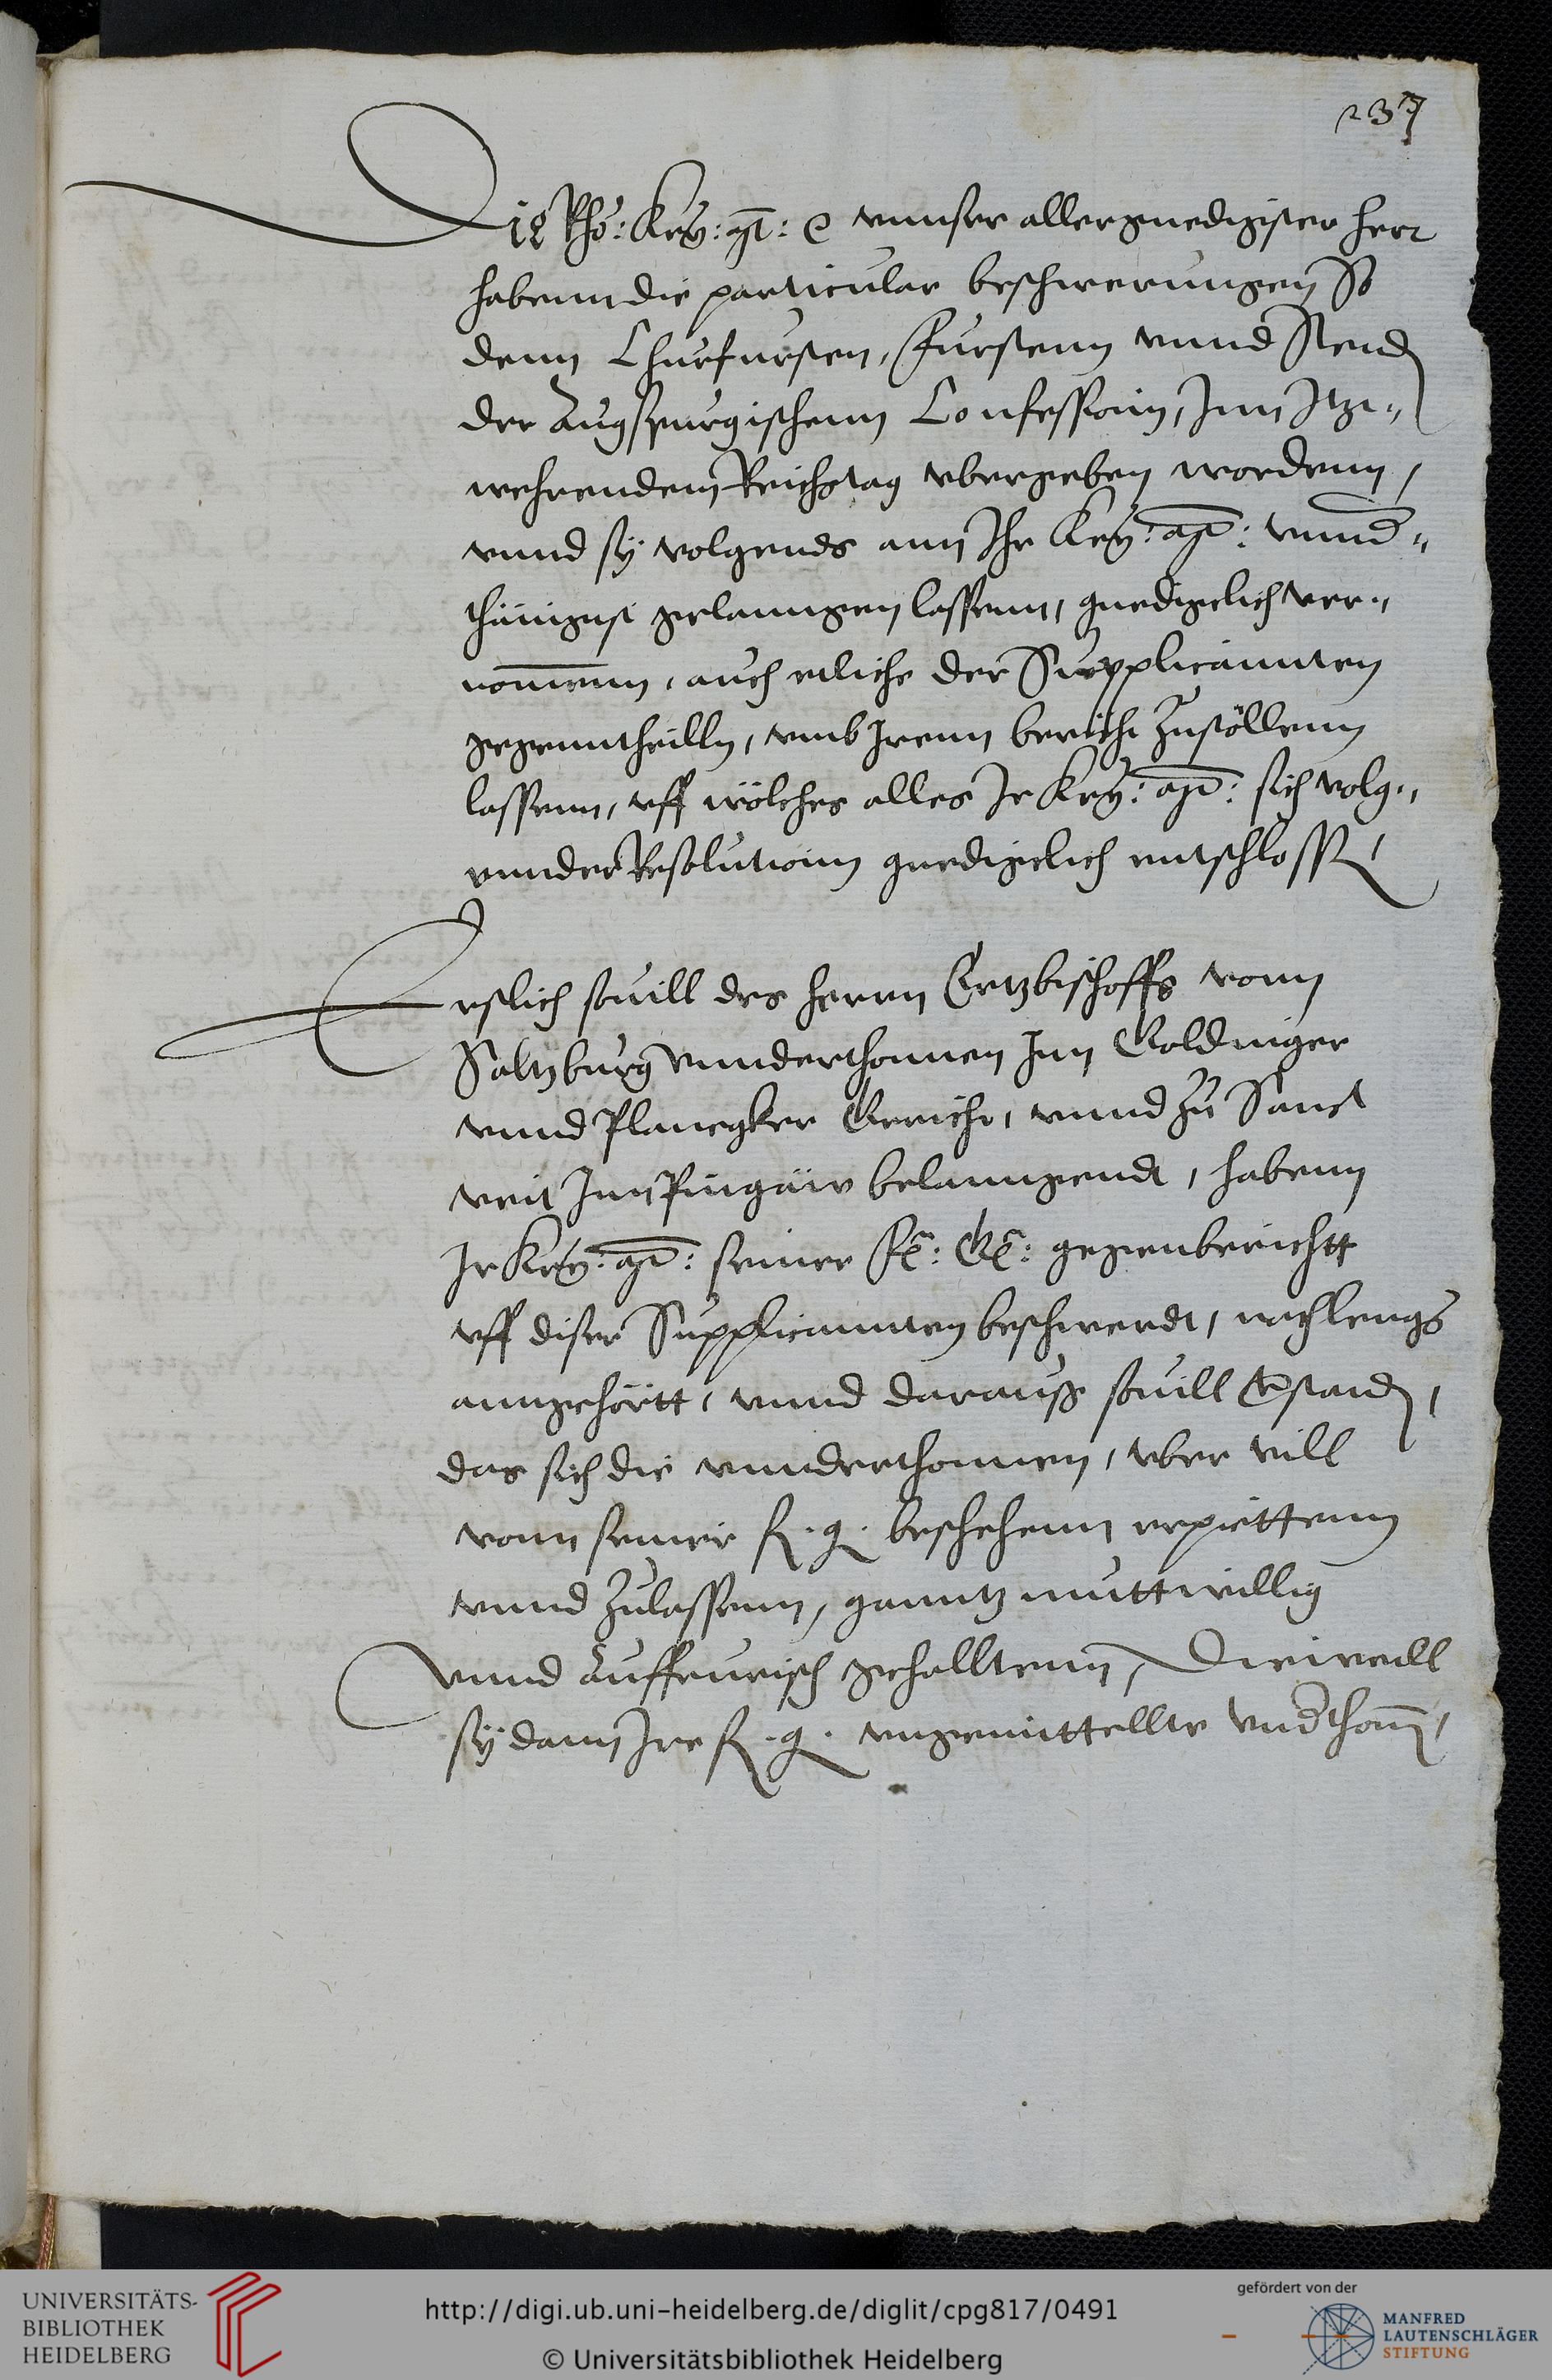 237
Die Rho: Key: Mt: ꝛc vnnser allergnedigister herr
habenn die particular beschwerungen So
denn Churfursten, Furstenn vnnd Stend
der Augspurgischenn Confession, Inn Itze„
wehrendem Reichstag vbergeben wordenn,
vnnd sy volgends ann Ihr Key: Mt: vnnd„
thänigst gelanngen lassenn, gnedigclich ver„
nommenn, auch etliche der Supplicannten
gegenntheilln, vmb Irenn bericht Zustöllenn
lassenn, vff wölches alles Ir Key: Mt: sich volg„
ennder Resolutionn gnedigclich entschloss
Erstlich souill des herrn Ertzbischoffs vonn
Saltzburg vnnderthonnen Inn Goldinger
vnnd Planegker Gericht, vnnd Zu Sanct
veit Inn Pingäw belanngendt, habenn
Ir Key: Mt: seiner F: G: gegenberichtt
vff diser Supplicannten beschwerdt, nach lengs
anngehörtt, vnnd darauss souill verstand,
das sich die vnnderthonnen, vber vill
vonn seiner f. g. beschehenn erpiettenn
vnnd Zulassenn, ganntz muttwillig
vnnd Auffrurisch gehalltenn, Dieweill
sy dann Irer f. g. vngemittellte vnderthon,
UNIVERSITÄTS-
BIBLIOTHEK
HEIDELBERG
http://digi.ub.uni-heidelberg.de/diglit/cpg817/0491
© Universitätsbibliothek Heidelberg
gefördert von der
MANFRED
LAUTENSCHLÄGER
STIFTUNG